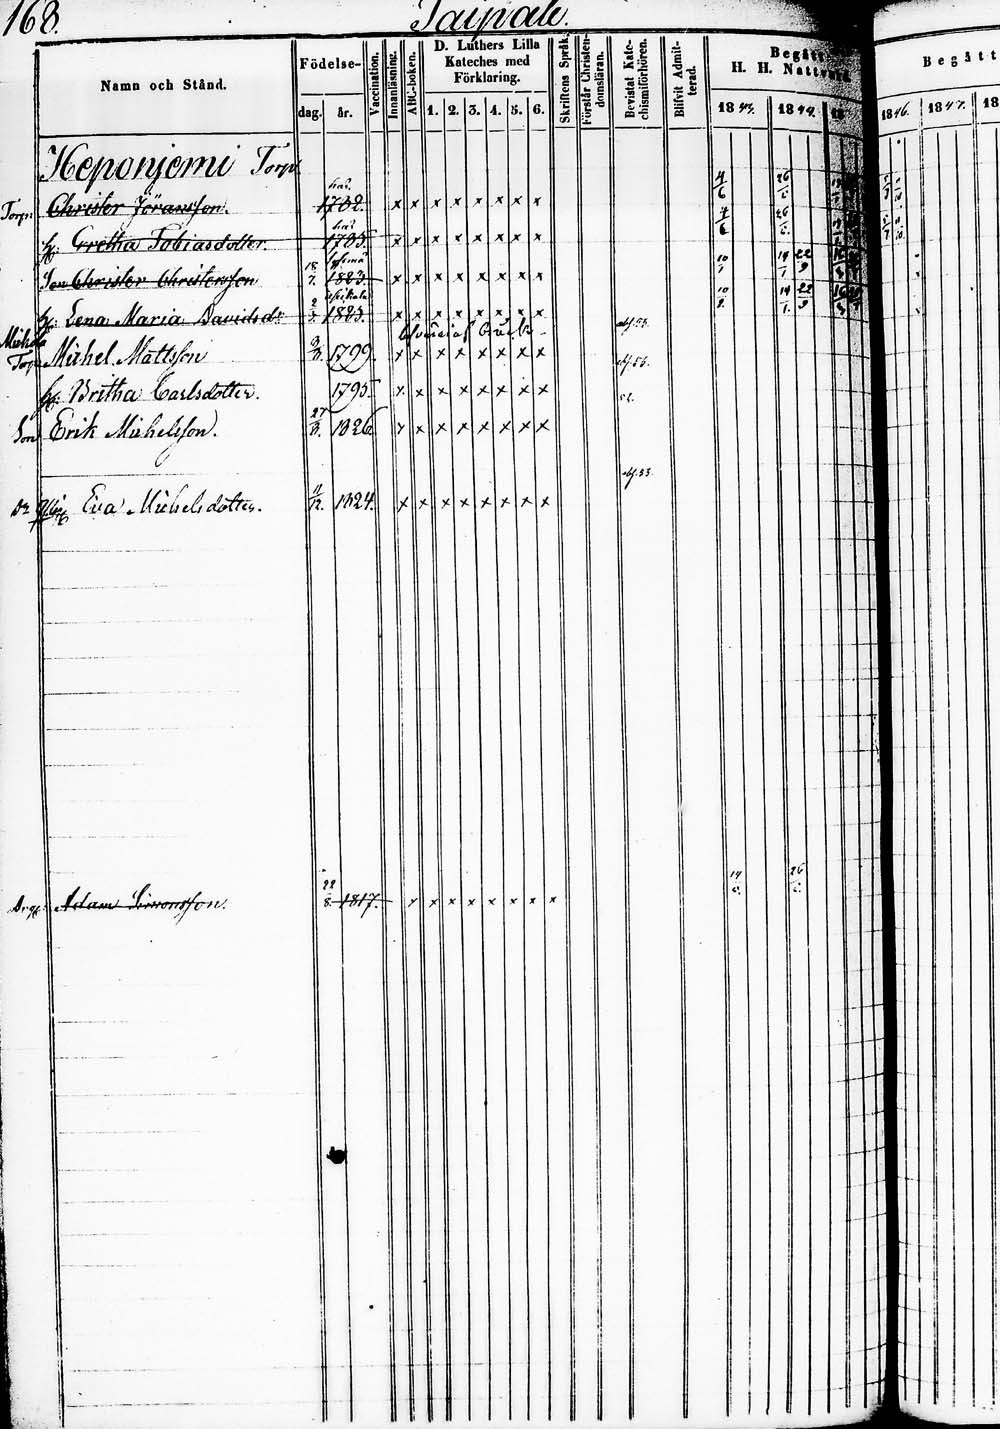 168.
Taipale.
Namn och Stånd.
Födelse-
dag. år.
Vaccination.
Innanläsning.
ABC-boken.
D. Luthers Lilla
Kateches med
Förklaring.
1. 2. 3. 4. 5. 6.
Skriftens Språk.
Förstår Christen-
domsläran.
Bevistat Kate-
chismiförhören.
Blifvit Admit-
terad.
Begått
H. H. Nattvard.
1843. 1844. 18
Begått
1846. 1847. 18
Heponjemi Torp
Torp: Christer Jöransson. 1782. x x x x x x x x 4/6 26/6
H: Gretha Tobiasdotter. 1785. x x x x x x x x 4/6 26/6
Son Christer Christersson 18/7. 1823. x x x x x x x x 10 14/1 22/9
H: Lena Maria Davidsdr 2 1823. x x x x x x x x 10/2. 14/1 22/9
Torp Michel Mattsson 3/3. 1799. x x x x x x x x
H: Britha Carlsdotter. 1795. x x x x x x x x
Son Erik Michelsson. 27/3. 1826 x x x x x x x x
Dr Eva Michelsdotter. 11/12. 1824. x x x x x x x x
Drg: Adam Simonsson. 22/8. 1817. x x x x x x x x 14/6. 26/6.